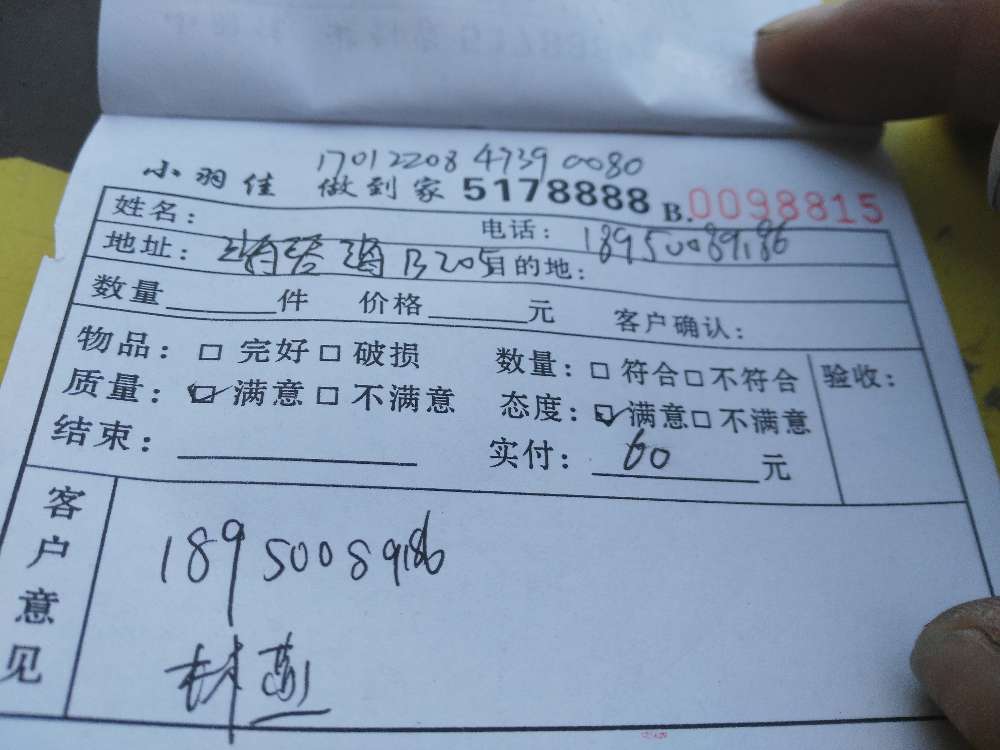 17012208 4739 0080
小羽佳 做到家 5178888 B. 0098815
姓名: 电话: 18950089186
地址: B205 目的地:
数量 件 价格 元 客户确认:
物品: □ 完好 □ 破损 数量: □ 符合 □ 不符合 验收:
质量: ☑ 满意 □ 不满意 态度: ☑ 满意 □ 不满意
结束: 实付: 60 元
客户意见
18950089186
林